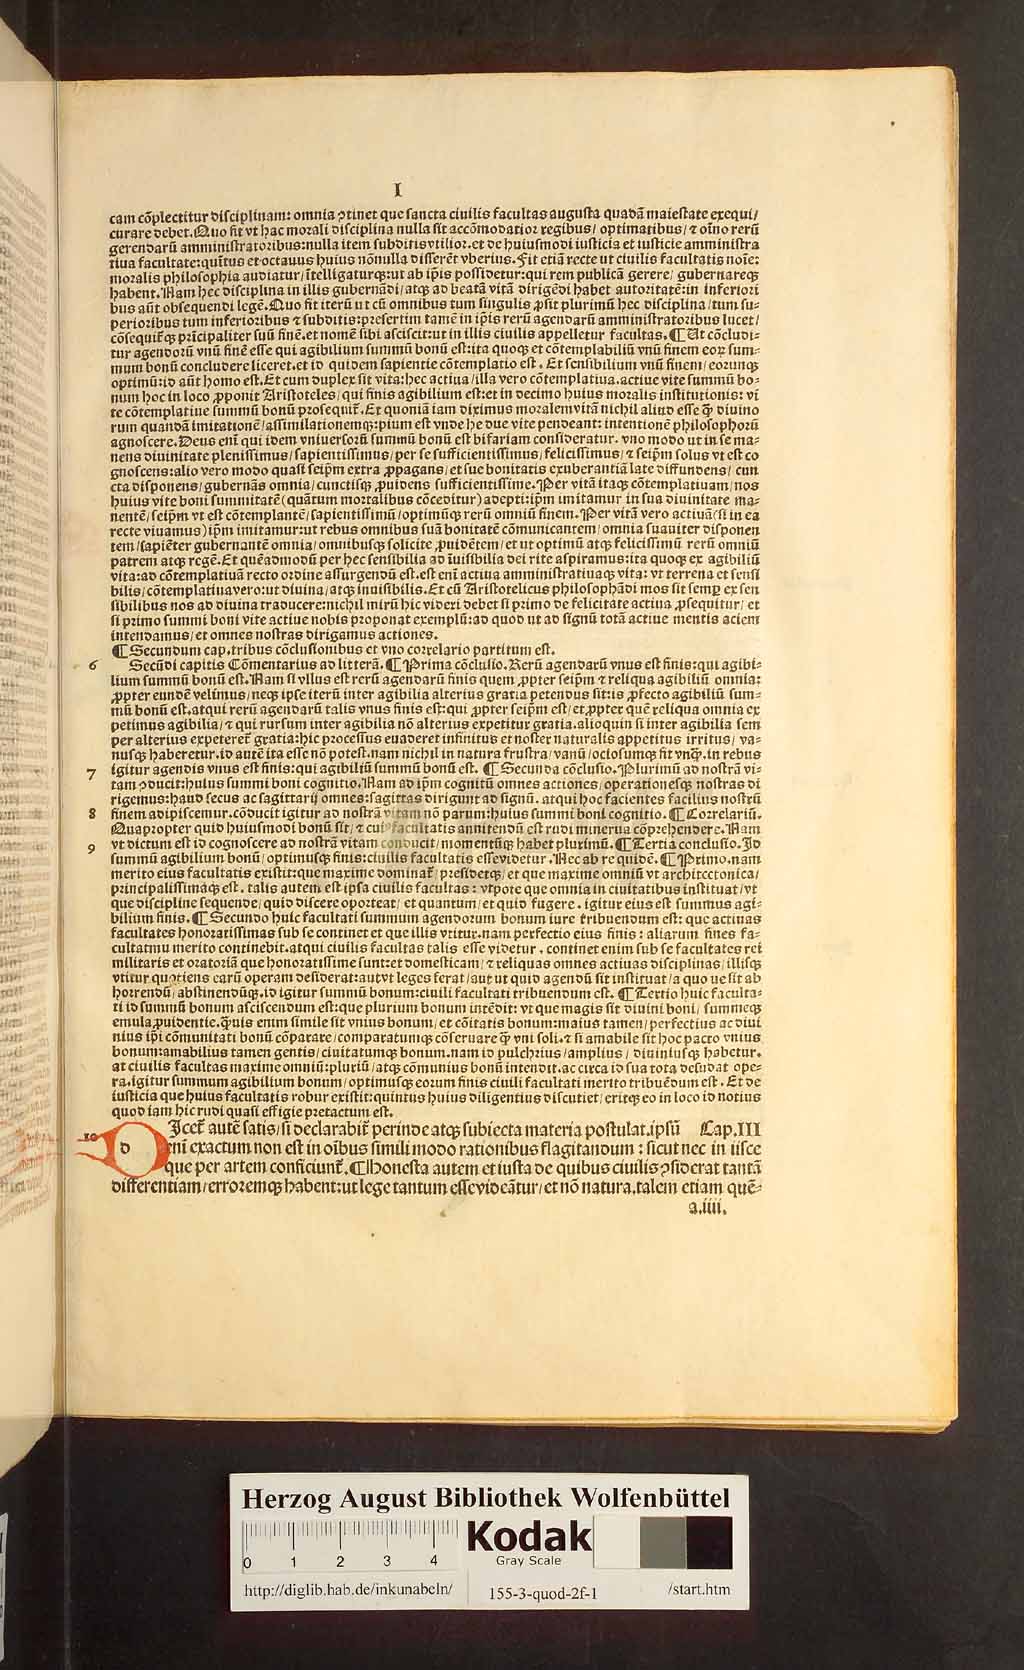 I
cam cõplectitur disciplinam: omnia ꝯtinet que sancta ciuilis facultas augusta quadã maiestate exequi/
curare debet. Quo fit vt hac morali disciplina nulla sit accõmodatior regibus/ optimatibus/ ⁊ oĩno rerũ
gerendarũ amministratoribus: nulla item subditis vtilior. et de huiusmodi iusticia et iusticie amministra
tiua facultate: quĩtus et octauus huius nõnulla differẽt vberius. Fit etiã recte ut ciuilis facultatis noĩe:
moralis philosophia audiatur/ ĩtelligaturqꝫ: ut ab ip̃is possidetur: qui rem publicã gerere/ gubernareqꝫ
habent. Nam hec disciplina in illis gubernãdi/ atqꝫ ad beatã vitã dirigẽdi habet autoritatẽ: in inferiori
bus aũt obsequendi legẽ. Quo fit iterũ ut cũ omnibus tum singulis ꝓsit plurimũ hec disciplina/ tum su⸗
perioribus tum inferioribus ⁊ subditis: presertim tamẽ in ip̃is rerũ agendarũ amministratoribus lucet/
cõsequit̃qꝫ prĩcipaliter suũ finẽ. et nomẽ sibi asciscit: ut in illis ciuilis appelletur facultas. ¶ Ut cõcludi⸗
tur agendorũ vnũ finẽ esse qui agibilium summũ bonũ est: ita quoqꝫ et cõtemplabiliũ vnũ finem eoꝝ sum⸗
mum bonũ concludere liceret. et id quidem sapientie cõtemplatio est. Et sensibilium vnũ finem/ eorunqꝫ
optimũ: id aũt homo est. Et cum duplex sit vita: hec actiua/ illa vero cõtemplatiua. actiue vite summũ bo⸗
num hoc in loco ꝓponit Aristoteles/ qui finis agibilium est: et in decimo huius moralis institutionis: vi
te cõtemplatiue summũ bonũ prosequit̃. Et quoniã iam diximus moralem vitã nichil aliud esse q̃ȝ diuino
rum quandã imitationẽ/ assimilationemqꝫ: pium est vnde he due vite pendeant: intentionẽ philosophorũ
agnoscere. Deus enĩ qui idem vniuersorũ summũ bonũ est bifariam consideratur. vno modo ut in se ma⸗
nens diuinitate plenissimus/ sapientissimus/ per se sufficientissimus/ felicissimus/ ⁊ seip̃m solus vt est co
gnoscens: alio vero modo quasi seip̃m extra ꝓpagans/ et sue bonitatis exuberantiã late diffundens/ cun
cta disponens/ gubernãs omnia/ cunctisqꝫ ꝓuidens sufficientissime. Per vitã itaqꝫ cõtemplatiuam/ nos
huius vite boni summitatẽ (quãtum mortalibus cõceditur) adepti: ip̃m imitamur in sua diuinitate ma⸗
nentẽ/ seip̃m vt est cõtemplantẽ/ sapientissimũ/ optimũqꝫ rerũ omniũ finem. Per vitã vero actiuã (si in ea
recte viuamus) ip̃m imitamur: ut rebus omnibus suã bonitatẽ cõmunicantem/ omnia suauiter disponen
tem/ sapiẽter gubernantẽ omnia/ omnibusqꝫ solicite ꝓuidẽtem/ et ut optimũ atqꝫ felicissimũ rerũ omniũ
patrem atqꝫ regẽ. Et quẽadmodũ per hec sensibilia ad ĩuisibilia dei rite aspiramus: ita quoqꝫ ex agibiliũ
vita: ad cõtemplatiuã recto ordine assurgendũ est. est enĩ actiua amministratiuaqꝫ vita: vt terrena et sensi
bilis/ cõtemplatiua vero: ut diuina/ atqꝫ inuisibilis. Et cũ Aristotelicus philosophãdi mos sit semp̃ ex sen
sibilibus nos ad diuina traducere: nichil mirũ hic videri debet si primo de felicitate actiua ꝓsequitur/ et
si primo summi boni vite actiue nobis proponat exemplũ: ad quod ut ad signũ totã actiue mentis aciem
intendamus/ et omnes nostras dirigamus actiones.
¶ Secundum cap. tribus cõclusionibus et vno correlario partitum est.
6 Secũdi capitis Cõmentarius ad litterã. ¶ Prima cõclusio. Rerũ agendarũ vnus est finis: qui agibi⸗
lium summũ bonũ est. Nam si vllus est rerũ agendarũ finis quem ꝓpter seip̃m ⁊ reliqua agibiliũ omnia:
ꝓpter eundẽ velimus/ neqꝫ ipse iterũ inter agibilia alterius gratia petendus sit: is ꝓfecto agibiliũ sum⸗
mũ bonũ est. atqui rerũ agendarũ talis vnus finis est: qui ꝓpter seip̃m est/ et ꝓpter quẽ reliqua omnia ex
petimus agibilia/ ⁊ qui rursum inter agibilia nõ alterius expetitur gratia. alioquin si inter agibilia sem
per alterius expeteret̃ gratia: hic processus euaderet infinitus et noster naturalis appetitus irritus/ va⸗
nusqꝫ haberetur. id autẽ ita esse nõ potest. nam nichil in natura frustra/ vanũ/ ociosumqꝫ fit vnq̃ȝ. in rebus
7 igitur agendis vnus est finis: qui agibiliũ summũ bonũ est. ¶ Secunda cõclusio. Plurimũ ad nostrã vi⸗
tam ꝯducit: huius summi boni cognitio. Nam ad ip̃m cognitũ omnes actiones/ operationesqꝫ nostras di
rigemus: haud secus ac sagittarij omnes: sagittas dirigunt ad signũ. atqui hoc facientes facilius nostrũ
8 finem adipiscemur. cõducit igitur ad nostrã vitam nõ parum: huius summi boni cognitio. ¶ Correlariũ.
Quapropter quid huiusmodi bonũ sit/ ⁊ cuius facultatis annitendũ est rudi minerua cõprehendere. Nam
9 vt dictum est id cognoscere ad nostrã vitam conducit/ momentũqꝫ habet plurimũ. ¶ Tertia conclusio. Id
summũ agibilium bonũ/ optimusqꝫ finis: ciuilis facultatis esse videtur. Nec ab re quidẽ. ¶ Primo. nam
merito eius facultatis existit: que maxime dominat̃/ presidetqꝫ/ et que maxime omniũ vt architectonica/
principalissimaqꝫ est. talis autem est ipsa ciuilis facultas: vtpote que omnia in ciuitatibus instituat/ vt
que discipline sequende/ quid discere oporteat/ et quantum/ et quid fugere. igitur eius est summus agi⸗
bilium finis. ¶ Secundo huic facultati summum agendorum bonum iure tribuendum est: que actiuas
facultates honoratissimas sub se continet et que illis vtitur. nam perfectio eius finis: aliarum fines fa⸗
cultatmu merito continebit. atqui ciuilis facultas talis esse videtur. continet enim sub se facultates rei
militaris et oratoriã que honoratissime sunt: et domesticam/ ⁊ reliquas omnes actiuas disciplinas/ illisqꝫ
vtitur quotiens earũ operam desiderat: aut vt leges ferat/ aut ut quid agendũ sit instituat/ a quo ue sit ab
horrendũ/ abstinendũqꝫ. id igitur summũ bonum: ciuili facultati tribuendum est. ¶ Tertio huic faculta⸗
ti id summũ bonum asciscendum est: que plurium bonum intẽdit: vt que magis sit diuini boni/ summeqꝫ
emula ꝓuidentie. q̃ȝuis enim simile sit vnius bonum/ et cõitatis bonum: maius tamen/ perfectius ac diui
nius ip̃i cõmunitati bonũ cõparare/ comparatumqꝫ cõseruare q̃ȝ vni soli. ⁊ si amabile sit hoc pacto vnius
bonum: amabilius tamen gentis/ ciuitatumqꝫ bonum. nam id pulchrius/ amplius/ diuiniusqꝫ habetur.
at ciuilis facultas maxime omniũ: pluriũ/ atqꝫ cõmunius bonũ intendit. ac circa id sua tota desudat ope⸗
ra. igitur summum agibilium bonum/ optimusqꝫ eorum finis ciuili facultati merito tribuẽdum est. Et de
iusticia que huius facultatis robur existit: quintus huius diligentius discutiet/ eritqꝫ eo in loco id notius
quod iam hic rudi quasi effigie pretactum est.
10 d Icet̃ autẽ satis/ si declarabit̃ perinde atqꝫ subiecta materia postulat. ipsũ Cap. III
enĩ exactum non est in oĩbus simili modo rationibus flagitandum: sicut nec in iisce
que per artem conficiunt̃. ¶ Honesta autem et iusta de quibus ciuilis ꝯsiderat tantã
differentiam/ erroremqꝫ habent: ut lege tantum esse videãtur/ et nõ natura. talem etiam quẽ⸗
a.iiii.
Herzog August Bibliothek Wolfenbüttel
0 1 2 3 4
Kodak
Gray Scale
http://diglib.hab.de/inkunabeln/ 155-3-quod-2f-1 /start.htm